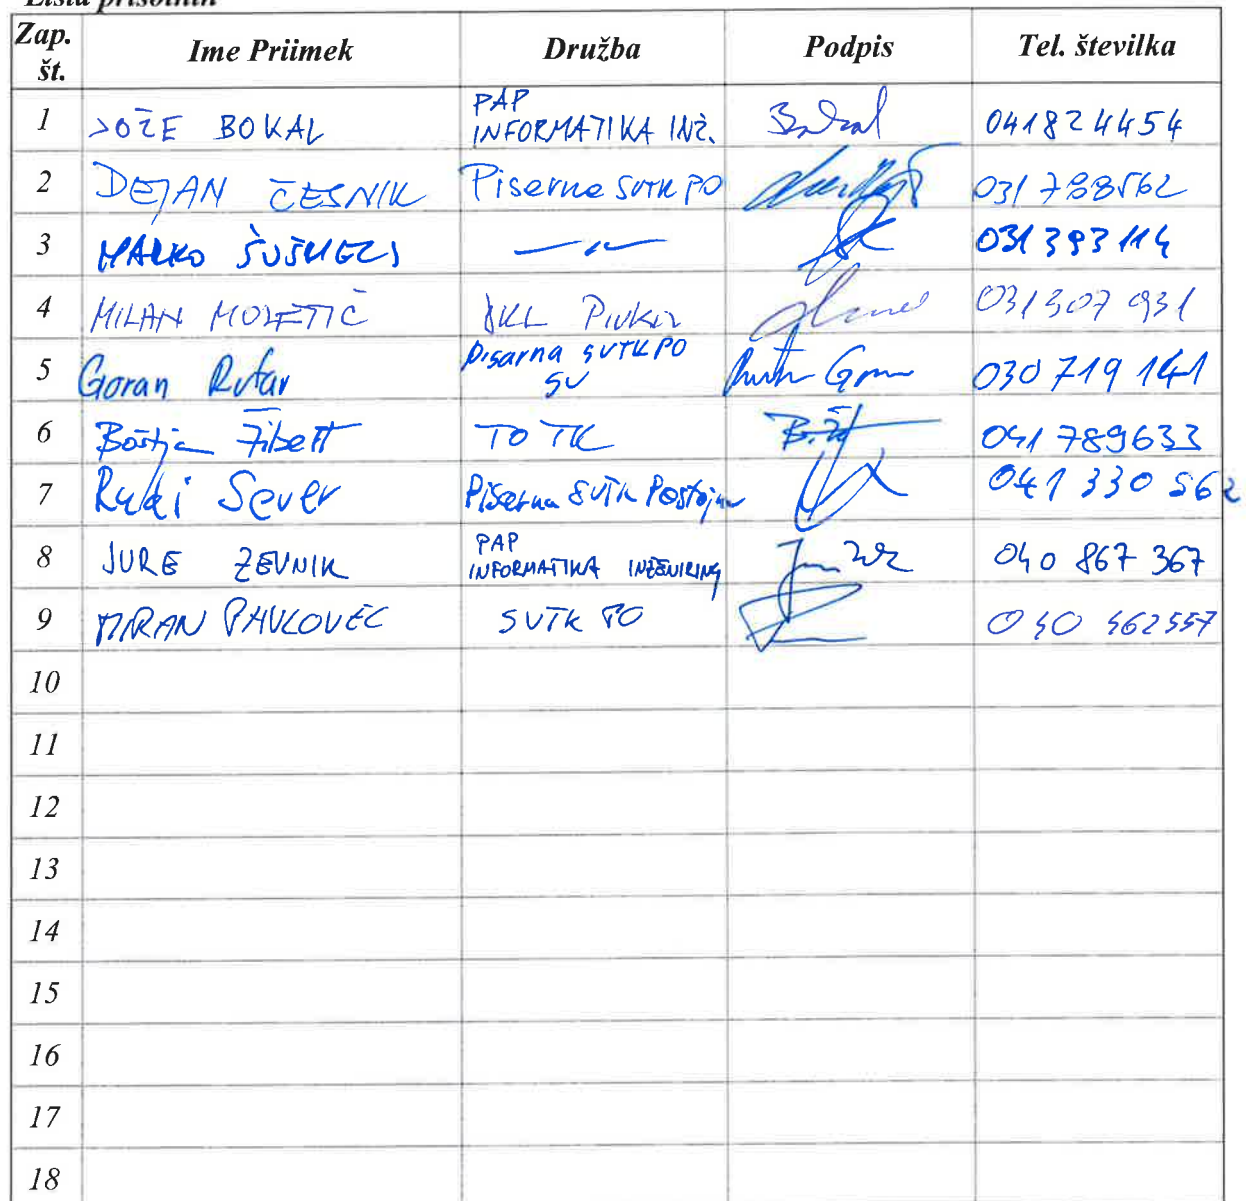 Lista prisotnih
Zap. št. Ime Priimek Družba Podpis Tel. številka
1 JOŽE BOKAL PAP INFORMATIKA INŽ. 041824454
2 DEJAN ČESNIK Pisarna SVTK PO 031 788562
3 MARKO 031 393 114
4 MILAN MOŽETIČ 031 307 931
5 Goran Rutar Pisarna SVTK PO SV 030 719 141
6 Boštjan Žibert TO TK 041 789633
7 Rudi Sever Pisarna SVTK Postojna 041 330 562
8 JURE ZEVNIK PAP INFORMATIKA INŽENIRING 040 867 367
9 MIRAN PAVLOVEC SVTK PO 040 462557
10
11
12
13
14
15
16
17
18